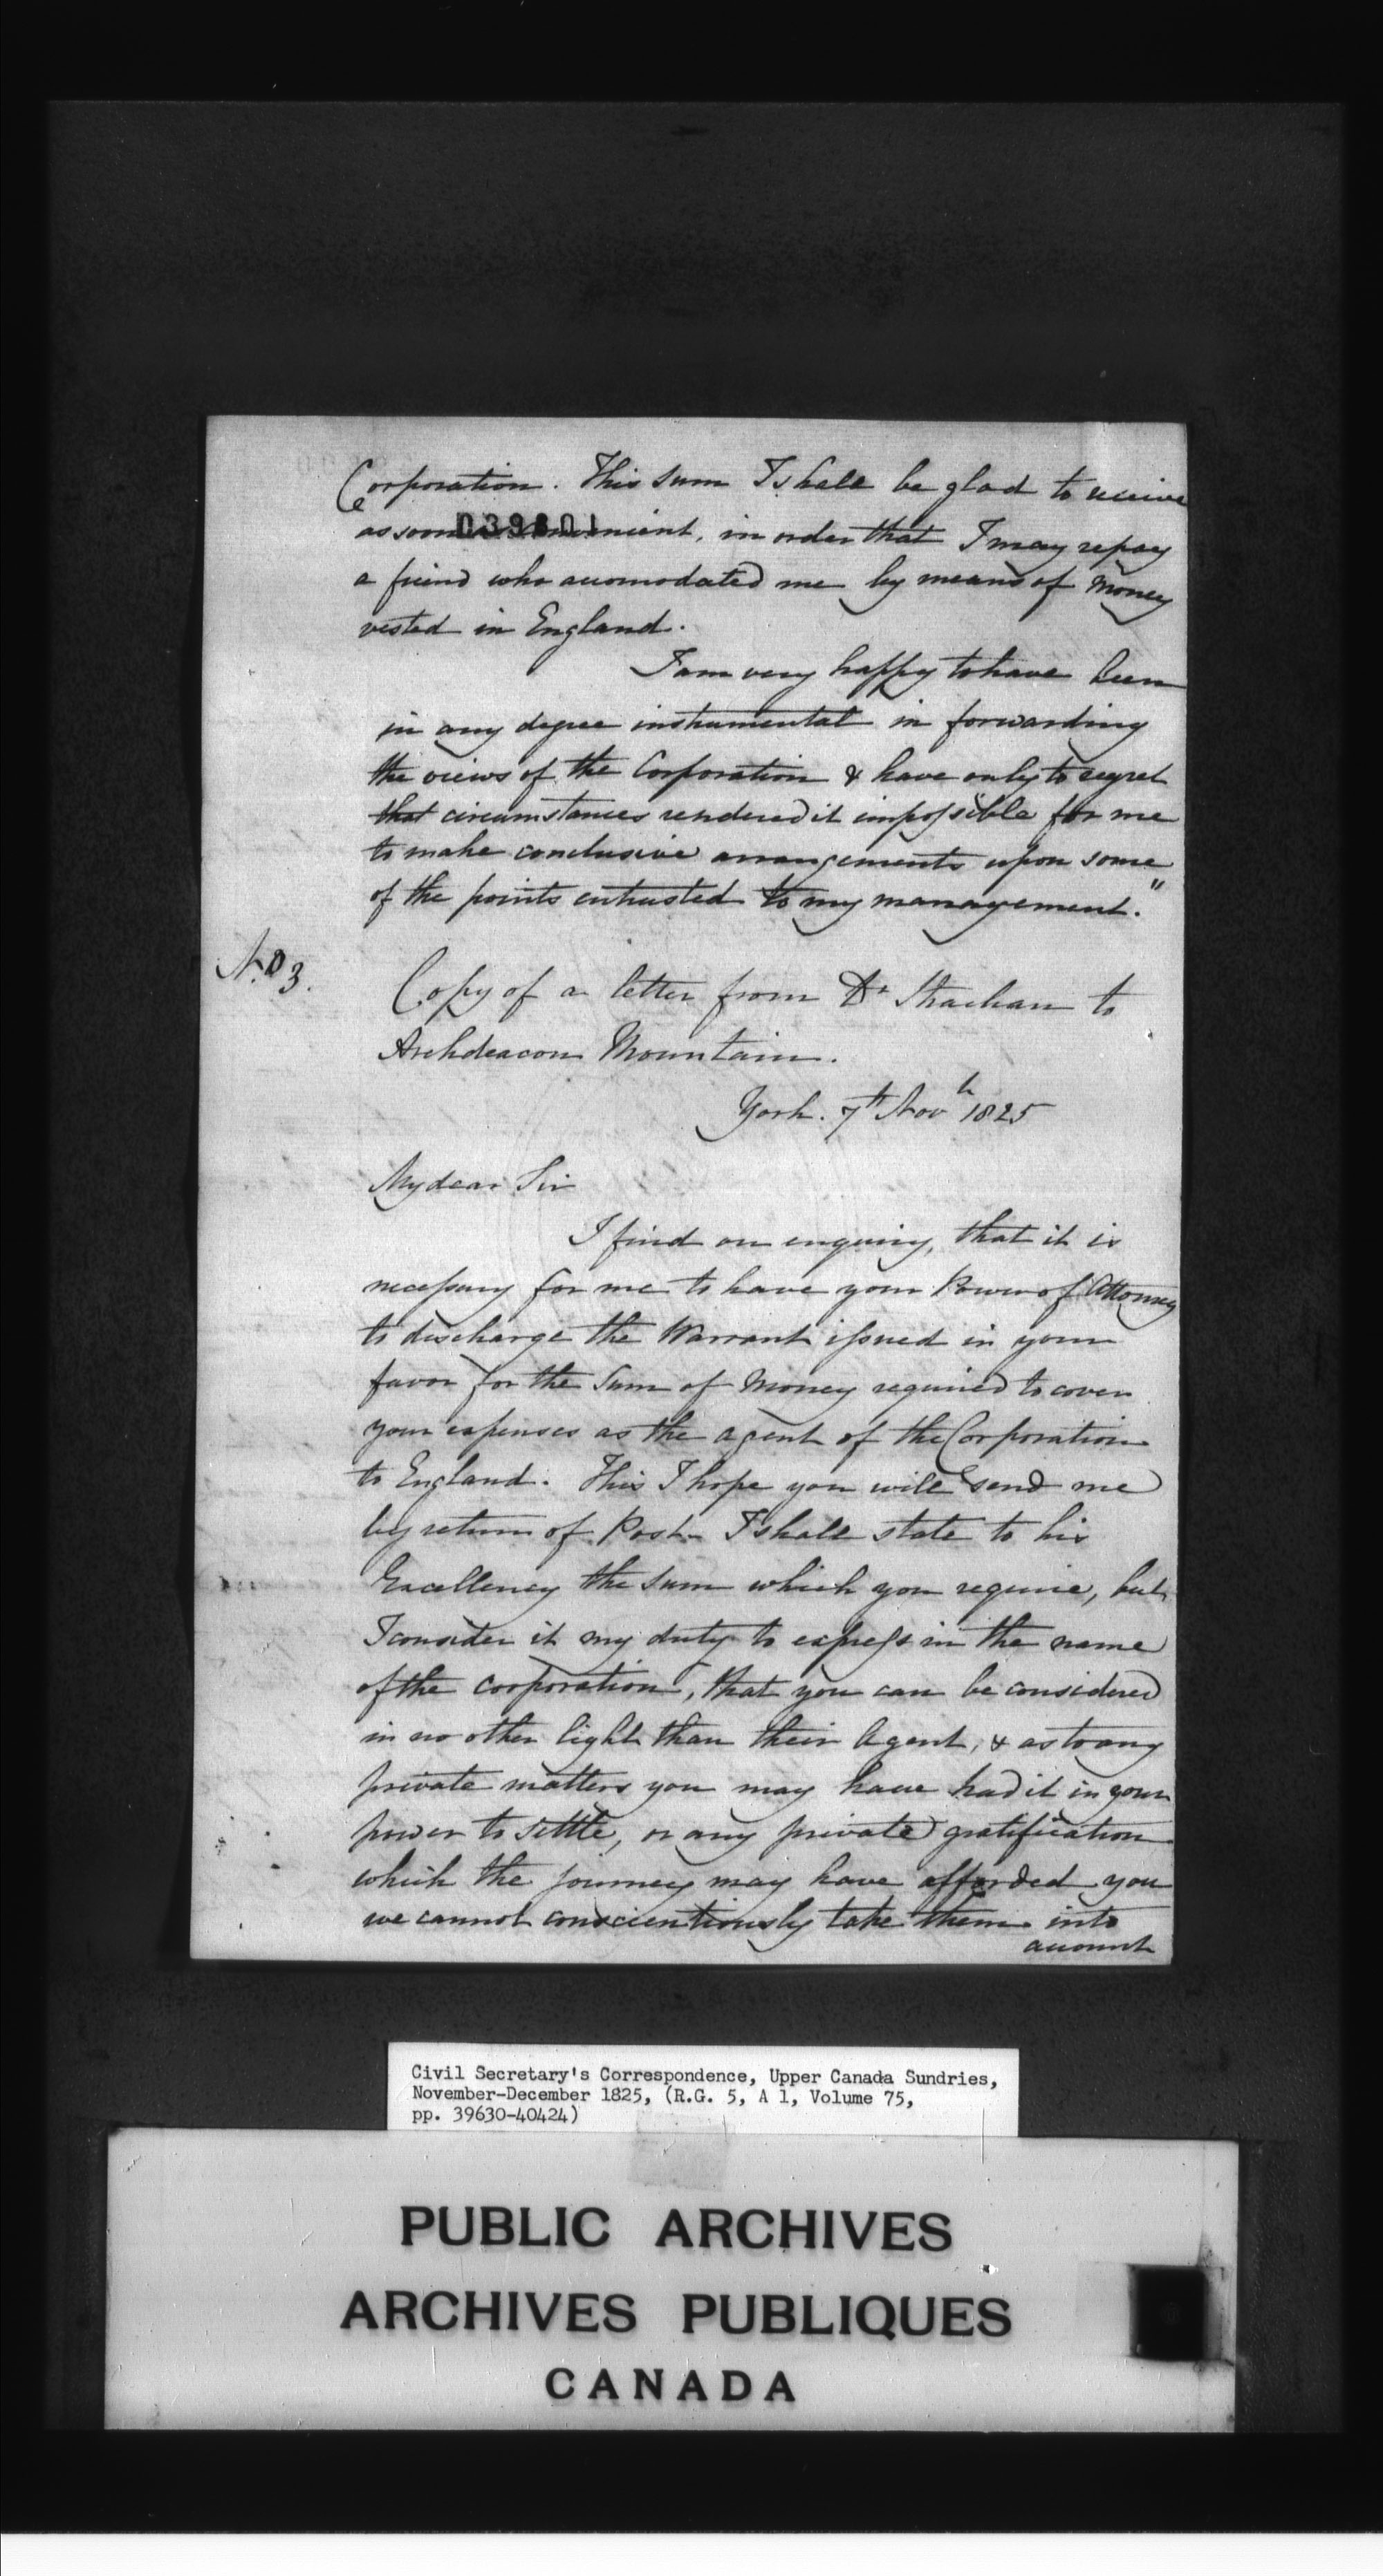 Corporation. This sum I shall be glad to receive
039801
as soon as convenient, in order that I may repay
a friend who accomodated me by means of Money
vested in England.
I am very happy to have been
in any degree instrumental in forwarding
the views of the Corporation & have only to regret
that circumstances rendered it impossible for me
to make conclusive arrangements upon some
of the points entrusted to my management."
No 3.
Copy of a letter from Dr Strachan to
Archdeacon Mountain.
York. 7th Novr 1825
My dear Sir
I find on enquiry, that it is
necessary for me to have your Power of Attorney
to discharge the Warrant issued in your
favor for the Sum of Money required to cover
your expenses as the agent of the Corporation
to England. This I hope you will send me
by return of Post - I shall state to his
Excellency the sum which you require, but
I consider it my duty to express in the name
of the corporation, that you can be considered
in no other light than their Agent, & as to any
private matters you may have had it in your
power to settle, or any private gratification
which the journey may have afforded you
we cannot conscientiously take them into
account
Civil Secretary's Correspondence, Upper Canada Sundries,
November-December 1825, (R.G. 5, A 1, Volume 75,
pp. 39630-40424)
PUBLIC ARCHIVES
ARCHIVES PUBLIQUES
CANADA